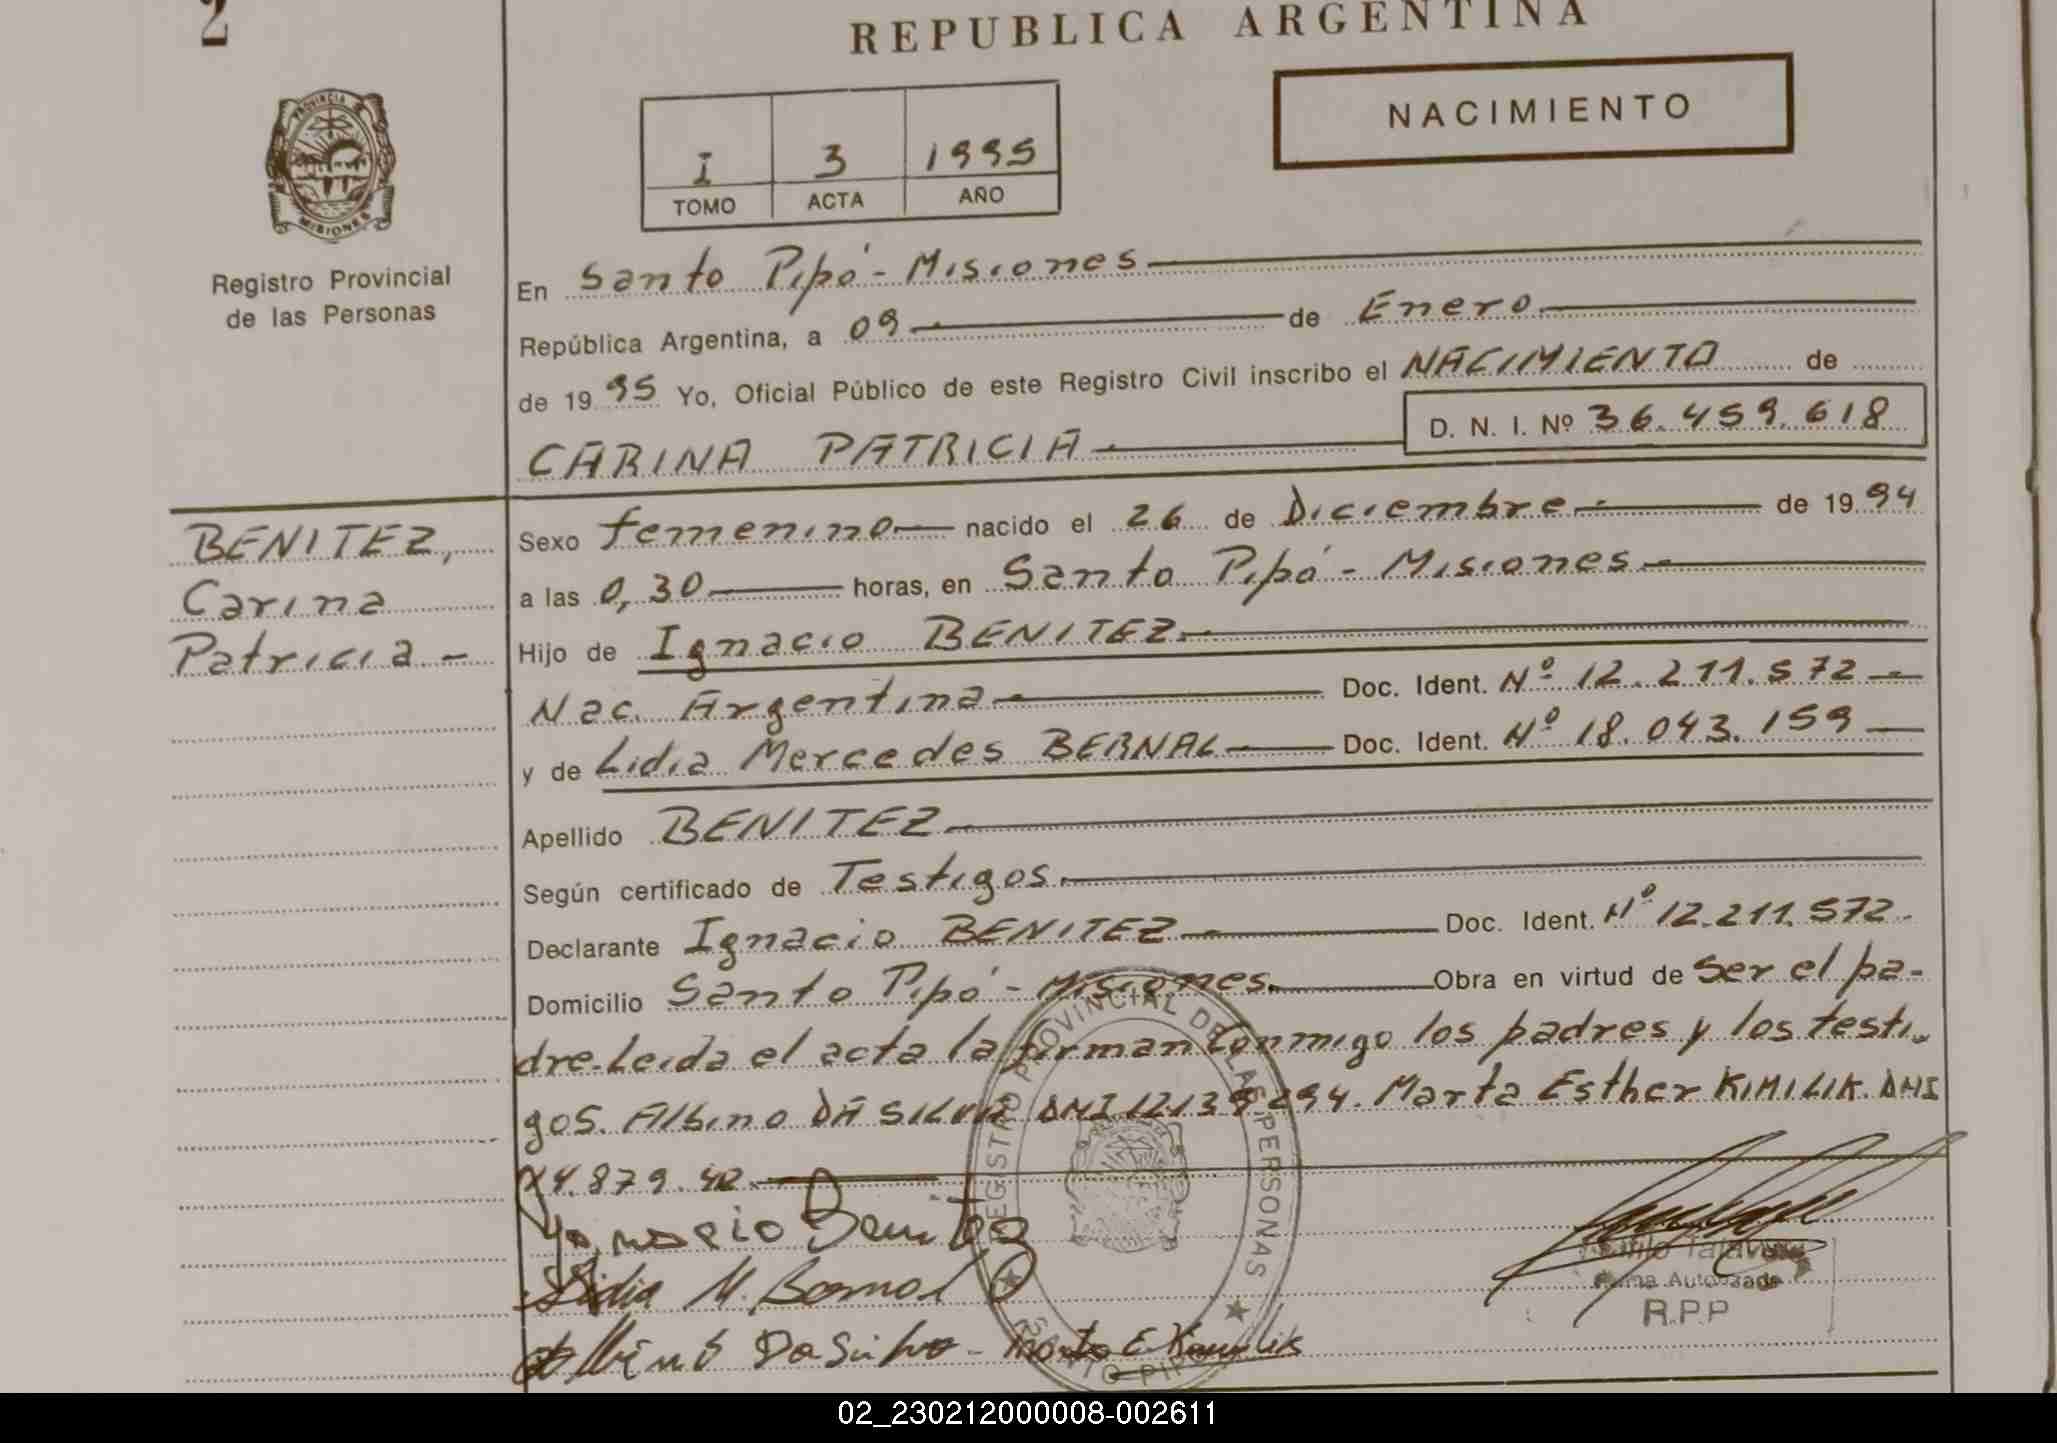 2
REPUBLICA ARGENTINA
NACIMIENTO
I 3 1995
TOMO ACTA AÑO
PROVINCIA DE
MISIONES
Registro Provincial
de las Personas
En Santo Pipó - Misiones
República Argentina, a 09 de Enero
de 1995 Yo, Oficial Público de este Registro Civil inscribo el NACIMIENTO de
CARINA PATRICIA D. N. I. Nº 36.459.618
BENITEZ,
Carina
Patricia.-
Sexo femenino nacido el 26 de Diciembre.- de 1994
a las 0,30 horas, en Santo Pipó - Misiones.-
Hijo de Ignacio BENITEZ.-
Nac. Argentina.- Doc. Ident. Nº 12.211.572
y de Lidia Mercedes BERNAL Doc. Ident. Nº 18.043.159
Apellido BENITEZ.-
Según certificado de Testigos.-
Declarante Ignacio BENITEZ.- Doc. Ident. Nº 12.211.572.-
Domicilio Santo Pipó - Misiones. Obra en virtud de Ser el pa-
dre. Leida el acta la firman conmigo los padres y los testi-
gos. Albino DA SILVA DNI 12.139.294. Marta Esther KIMILIK. DNI
Ignacio Benitez
Lidia M. Bernal
Albino Da Silva - Marta E. Kimilik
REGISTRO PROVINCIAL DE LAS PERSONAS
SANTO PIPO
Talavera
Firma Autorizada
R.P.P
02_230212000008-002611